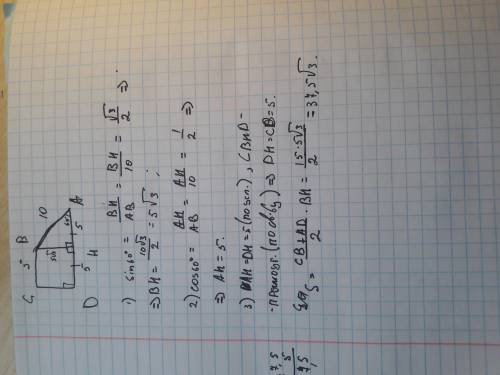 C 5 B 10
5√3 60°
D 5 H 5 A
1) sin60° = BH/AB = BH/10 = √3/2 ⇒
⇒ BH = 10√3/2 = 5√3 ;
2) cos60° = AH/AB = AH/10 = 1/2 ⇒
⇒ AH = 5.
3) AH = DH = 5 (по усл.), CBHD –
- прямоуг. (по св-ву) ⇒ DH = CB = 5.
S = CB + AD/2 · BH = 15·5√3/2 = 37,5√3.
7,5
5